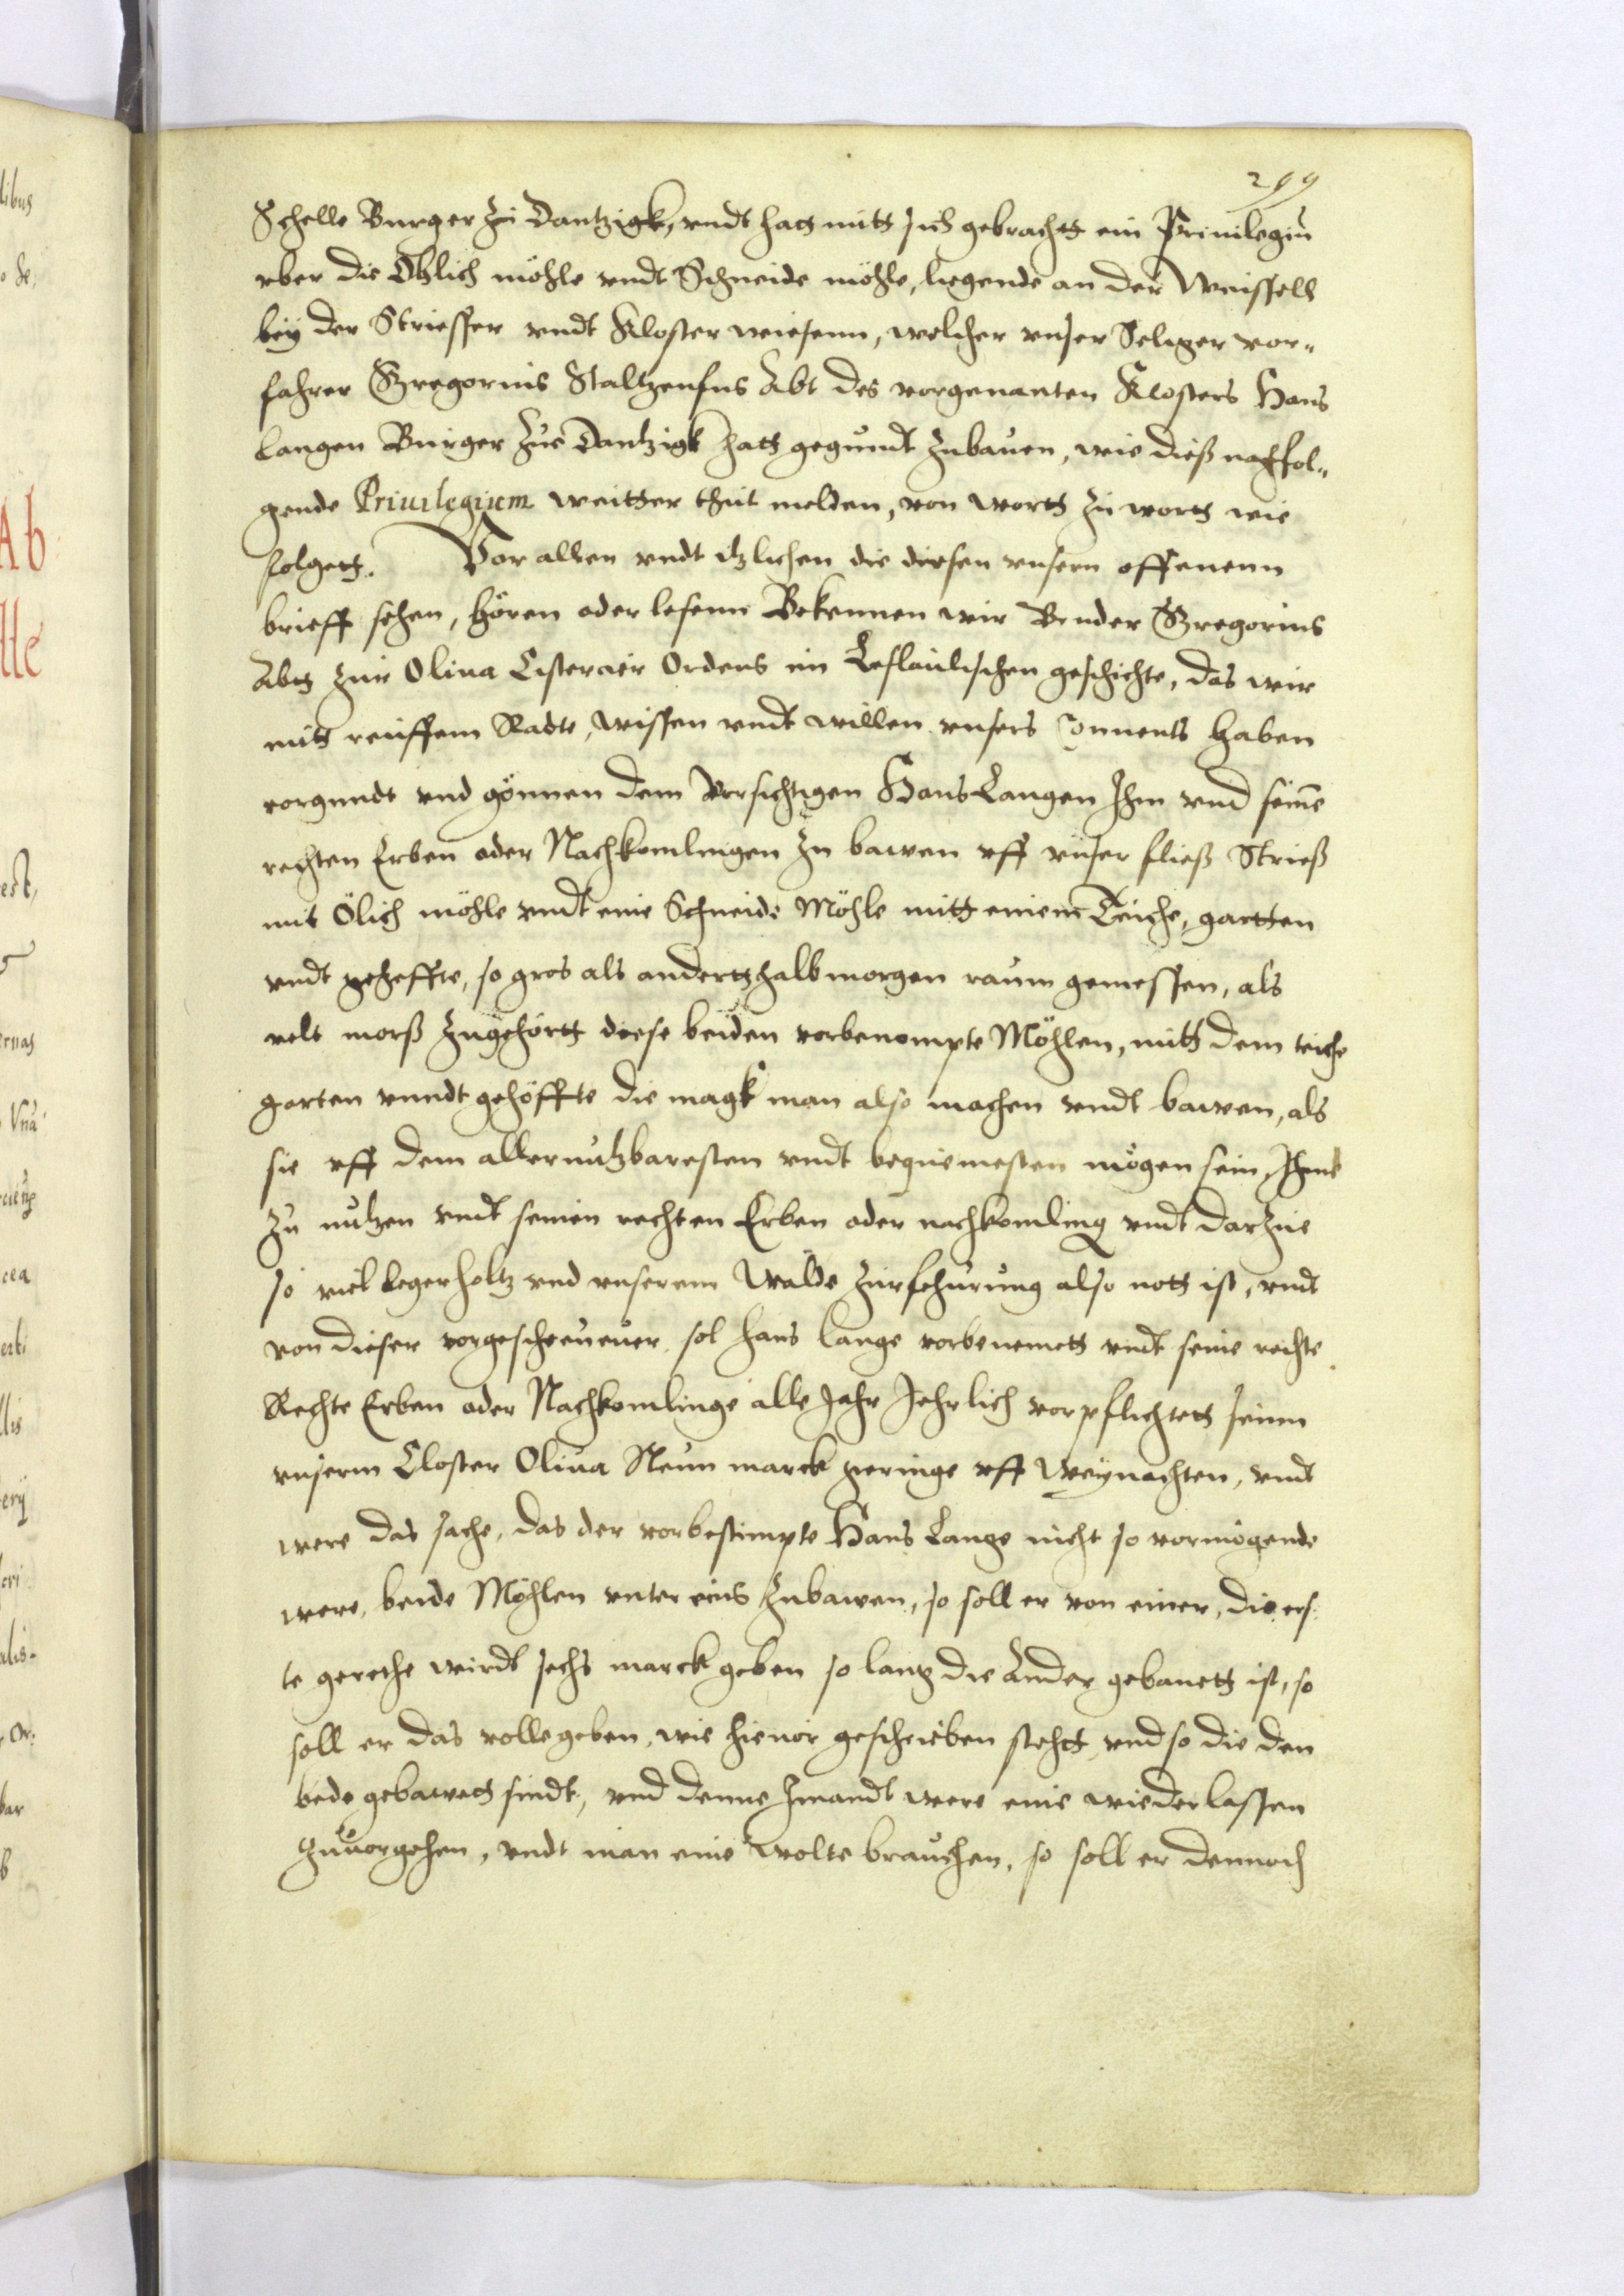 299
Schelle Burger zu Dantzigk, vndt hatt mitt sich gebrachtt ein Priuilegiu
vber die Öhlich möhle vndt Schneide möhle, liegende an der Weissell
bey der Striesser vndt Kloster wiesenn, welcher vnser Seliger vor„
fahrer Gregorius Staltzenfus Abt des vorgenanten Klosters Hans
Langen Burger zue Dantzigk hatt gegundt zubauen, wie dieß nachfol„
gende Priuilegium weitter thut melden, von wortt zu wortt wie
folgett. Vor allen vndt itzlichen die diesen vnsern offenenn
brieff sehen, hören oder lesenn Bekennen wir Bruder Gregorius
Abtt zur Oliua Cistercier Ordens im Leslauischen geschichte, das wir
mitt reiffem Radte, wissen vndt willen vnsers Conuents haben
vorgundt vnd gönnen dem Vorsichtigen Hans Langen Ihm vnd seine
rechten Erben oder Nachkomlingen zu bawen vff vnser fließ Strieß
mit Ölich möhle vndt eine Schneide Möhle mitt einem Teiche, gartten
vndt geheffte, so gros als andertthalb morgen raum gemessen, als
velt morß zugehörtt diese beiden vorbenompte Möhlen, mitt dem teiche
garten vnndt gehöffte die magk man also machen vndt bawen, als
sie vff dem allernutzbaresten vndt bequemesten mögen sein, Ihme
zu nutzen vndt seinen rechten Erben oder nachkomling vndt darzue
so viel legerholtz vnd vnserem Walde zur fehurung also nott ist, vndt
von dieser vorgeschreuener sol hans lange vorbenemett vndt seine rechte
Rechte Erben oder Nachkomlinge alle Jahr Jehrlich vorpflichtett seinn
vnserm Closter Oliua Neun marck geringe vff Weynachten, vndt
were das sache, das der vorbestimpte Hans Lange nicht so vormögende
were, beide Möhlen vnter eins zubawen, so soll er von einer, die ers„
te gerethe wirdt sechs marck geben so lang die Ander gebauett ist, so
soll er das volle geben, wie hieuor geschrieben stehtt, vnd so die den
bede gebawett sindt, vnd denne Jmandt were eine wiederlassen
zuuorgehen, vndt man eine wolte brauchen, so soll er dennoch